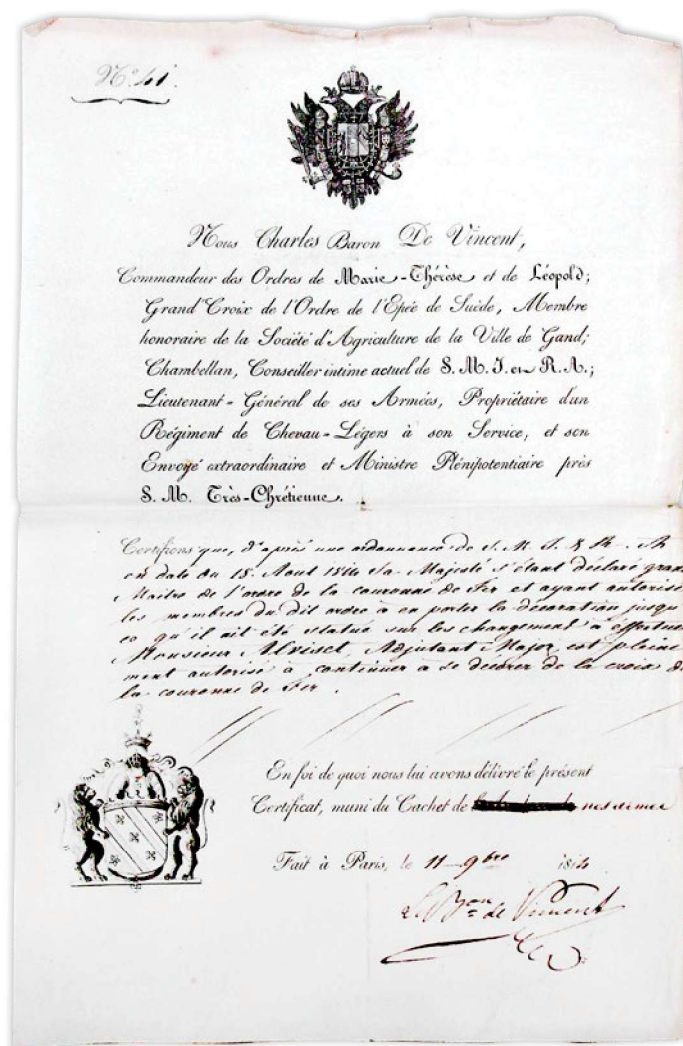 N.° 41.
Nous Charles Baron De Vincent,
Commandeur des Ordres de Marie-Thérèse et de Léopold;
Grand'Croix de l'Ordre de l'Epée de Suède, Membre
honoraire de la Société d'Agriculture de la Ville de Gand;
Chambellan, Conseiller intime actuel de S. M. I. et R. A.;
Lieutenant-Général de ses Armées, Propriétaire d'un
Régiment de Chevau-Légers à son Service, et son
Envoyé extraordinaire et Ministre Plénipotentiaire près
S. M. Très-Chrétienne.
Certifions que, d'après une ordonnance de S. M. I. & R. A
en date du 15. Aout 1814 Sa Majesté s'étant déclaré gran
Maitre de l'ordre de la couronne de Fer et ayant autorisé
les membres du dit ordre à en porter la décoration jusqu
ce qu'il ait été statué sur les changement à effectuer
Monsieur Adjutant Major est pleine
ment autorisé à continuer à se décorer de la croix de
la couronne de Fer.
En foi de quoi nous lui avons délivré le présent
Certificat, muni du Cachet de nos armes
Fait à Paris, le 11 9bre 1814
Le Bon de Vincent